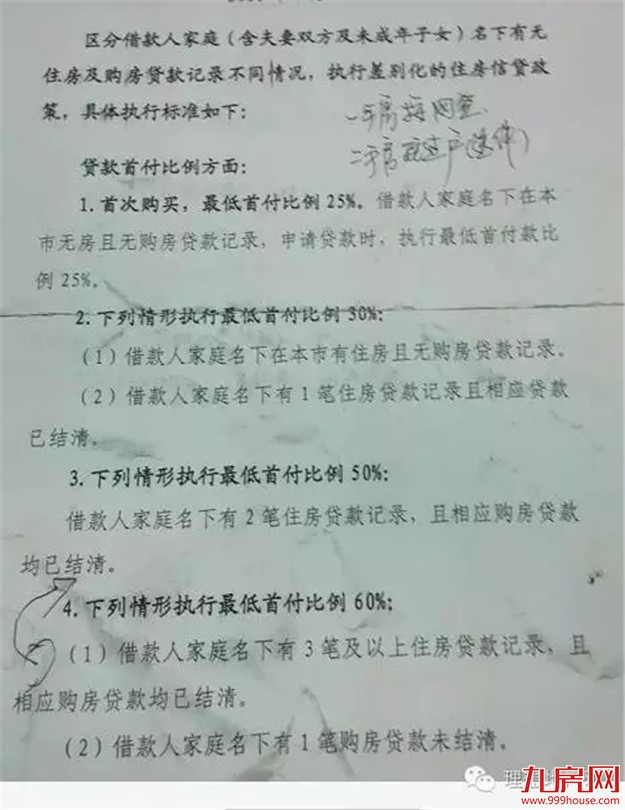 区分借款人家庭（含夫妻双方及未成年子女）名下有无
住房及购房贷款记录不同情况，执行差别化的住房信贷政
策，具体执行标准如下：
一手房按网签
二手房按过户递件）
贷款首付比例方面：
1.首次购买，最低首付比例25%。借款人家庭名下在本
市无房且无购房贷款记录，申请贷款时，执行最低首付款比
例25%。
2.下列情形执行最低首付比例30%：
（1）借款人家庭名下在本市有住房且无购房贷款记录。
（2）借款人家庭名下有1笔住房贷款记录且相应贷款
已结清。
3.下列情形执行最低首付比例50%：
借款人家庭名下有2笔住房贷款记录，且相应购房贷款
均已结清。
4.下列情形执行最低首付比例60%：
（1）借款人家庭名下有3笔及以上住房贷款记录，且
相应购房贷款均已结清。
（2）借款人家庭名下有1笔购房贷款未结清。
九房网
www.999house.com